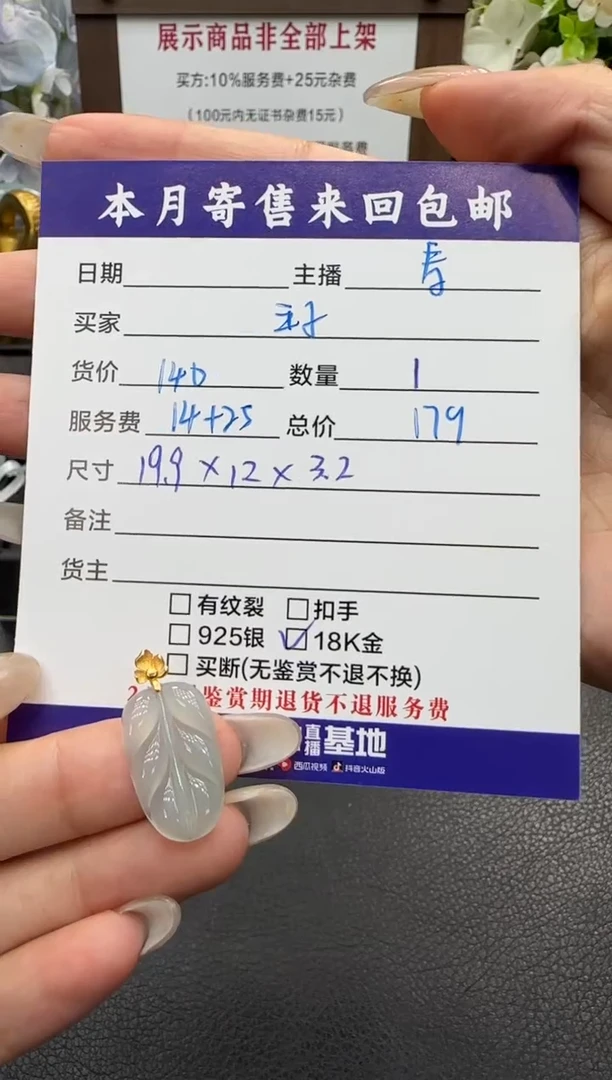 展示商品非全部上架
买方:10%服务费+25元杂费
(100元内无证书杂费15元)
服务费
本月寄售来回包邮
日期 主播
买家
货价 140 数量 1
服务费 14+25 总价 179
尺寸 19.9 × 12 × 3.2
备注
货主
有纹裂 扣手
925银 18K金
买断(无鉴赏不退不换)
鉴赏期退货不退服务费
直播基地
西瓜视频 抖音火山版